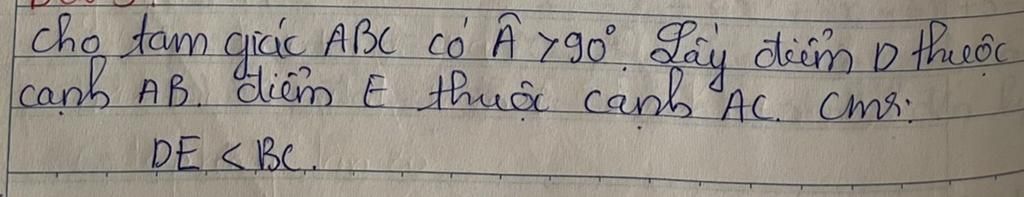 cho tam giác ABC có Â > 90°. Lấy điểm D thuộc
cạnh AB. điểm E thuộc cạnh AC. Cmr:
DE < BC.